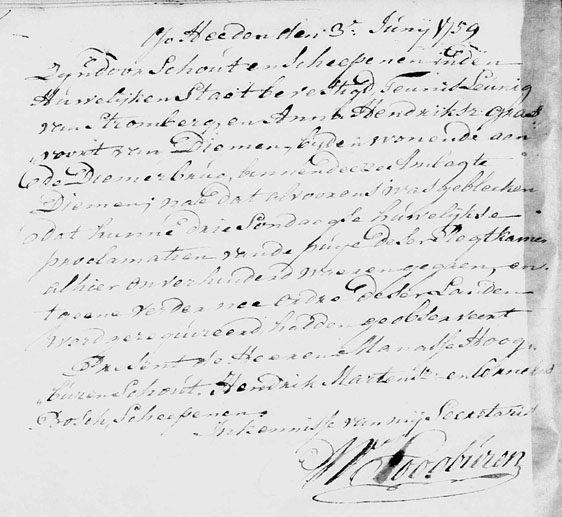 Heeden den 3e. Junij 1759
Zijn door Schout en Scheepenen in den
Huwelijken Staat bevestigd, Teunis Leunig
van Stromberg, en Anna Hendriksz: Graf„
„voort van Diemen, bijden wonende aan
de Diemerbrug, binnen deeze Ambagte
Diemen; na dat alvoorens was gebleeken
dat hunne drie Sondaagse huwelijkse
proclamatien van de puije deser Regtkamer
alhier onverhinderd waren gegaen, en
tgeene verder nae ordre deser Landen
word gerequireerd hadden geobserveert
Present de Heeren Manasse Hoog„
„buren Schout, Hendrik Martensz: en Cornelis
Bosch, Scheepenen.
In kennisse van mij Secretaris
Hoogburen